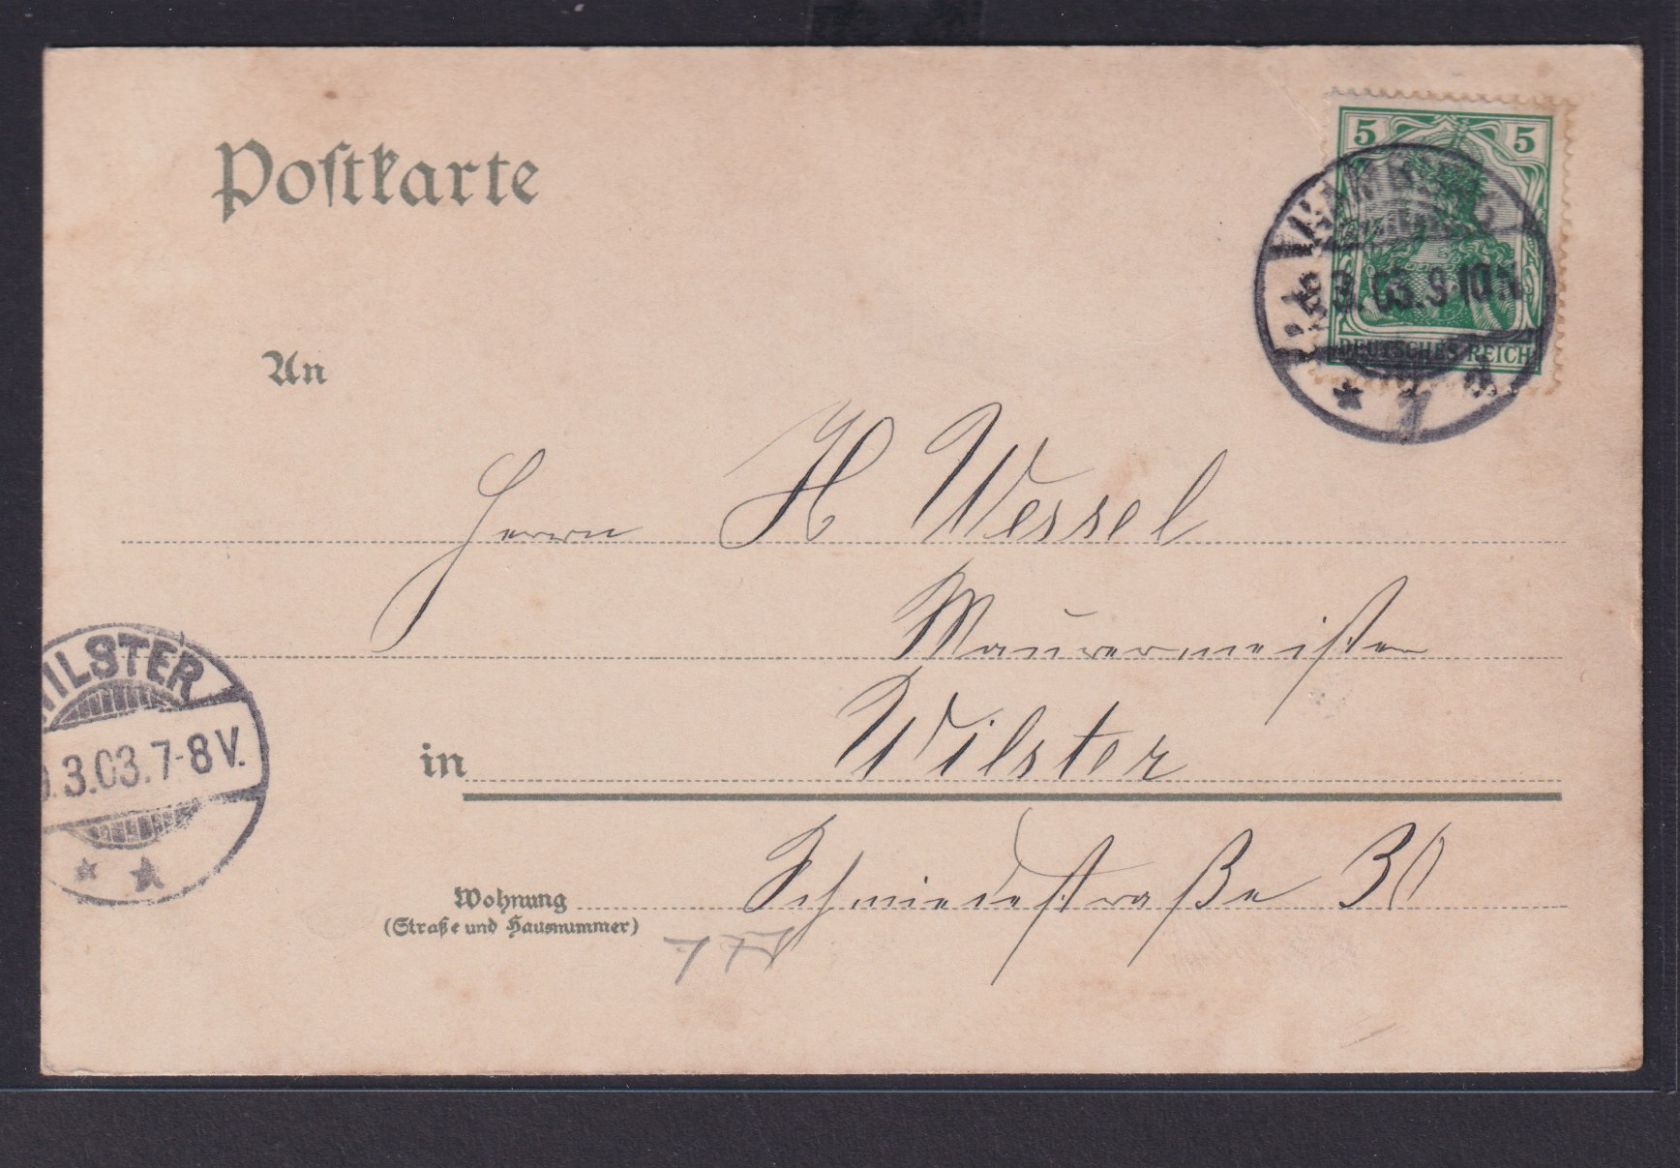 Postkarte
5 5
HAMBURG
3.03.9-10N
DEUTSCHES REICH
* 1
An
Herrn H Wessel
Maurermeister
WILSTER
.3.03.7-8V.
* *
in Wilster
Wohnung Schmiedestraße 30
(Straße und Hausnummer)